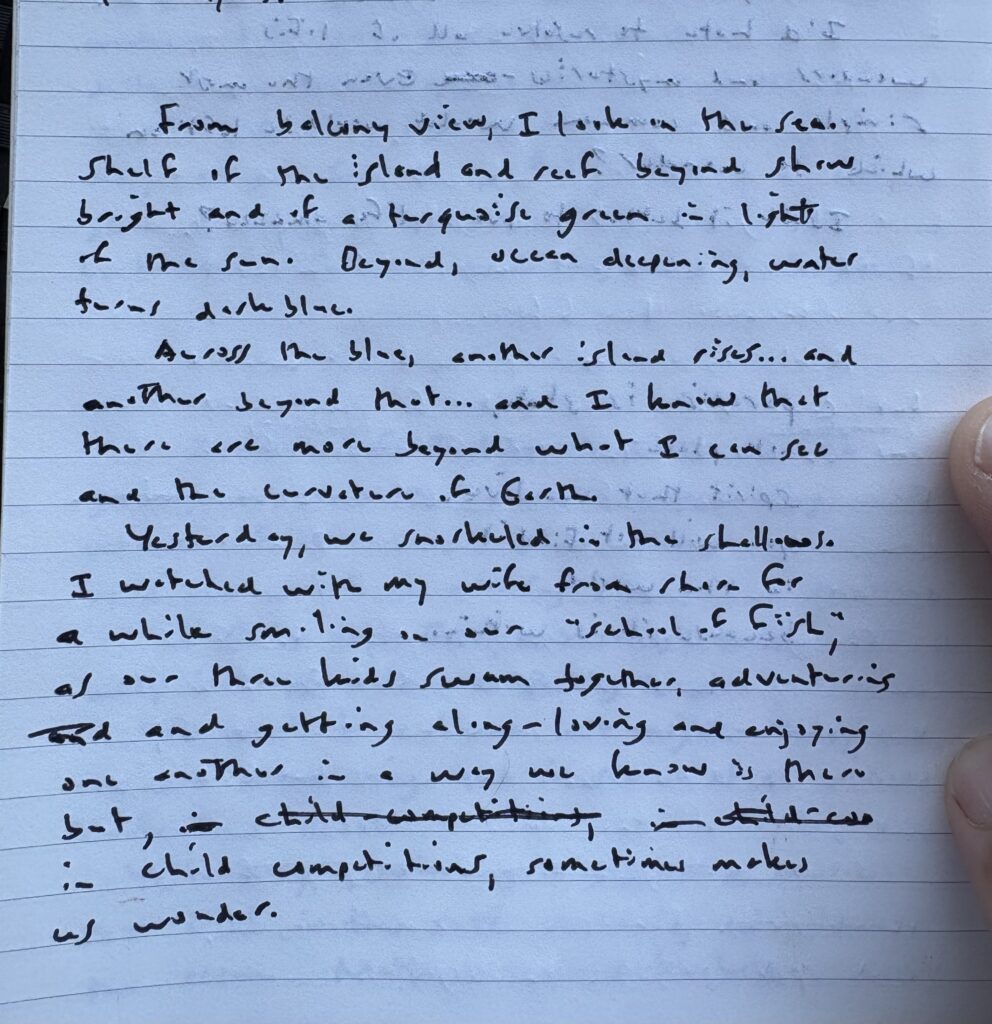 From balcony view, I look on the sea.
Shelf of the island and reef beyond show
bright and of a turquoise green in light
of the sun. Beyond, ocean deepening, water
turns dark blue.
Across the blue, another island rises... and
another beyond that... and I know that
there are more beyond what I can see
and the curvature of Earth.
Yesterday, we snorkeled in the shallows.
I watched with my wife from shore for
a while smiling on our "school of fish,"
as our three kids swam together, adventuring
and and getting along-loving and enjoying
one another in a way we know is there
but, in child competitions, in child-com
in child competitions, sometimes makes
us wonder.